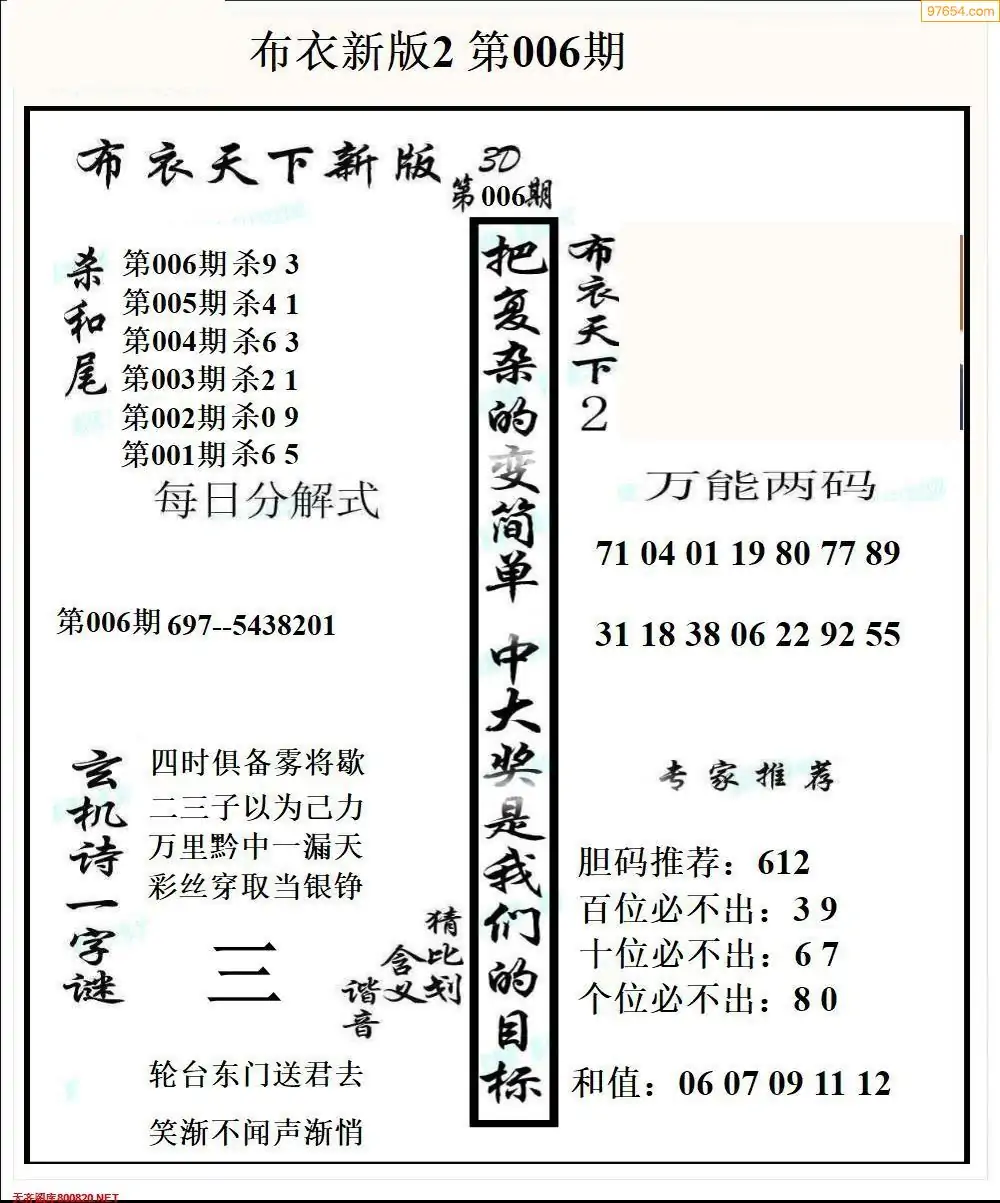 97654.com
布衣新版2 第006期
布衣天下新版 3D
第006期
杀和尾
第006期 杀9 3
第005期 杀4 1
第004期 杀6 3
第003期 杀2 1
第002期 杀0 9
第001期 杀6 5
每日分解式
第006期 697--5438201
玄机诗一字谜
四时俱备雾将歇
二三子以为己力
万里黔中一漏天
彩丝穿取当银铮
三
猜比划
含义
谐音
轮台东门送君去
笑渐不闻声渐悄
把复杂的变简单 中大奖是我们的目标
布衣天下2
万能两码
71 04 01 19 80 77 89
31 18 38 06 22 92 55
专家推荐
胆码推荐：612
百位必不出：3 9
十位必不出：6 7
个位必不出：8 0
和值：06 07 09 11 12
天齐图库800820.NET